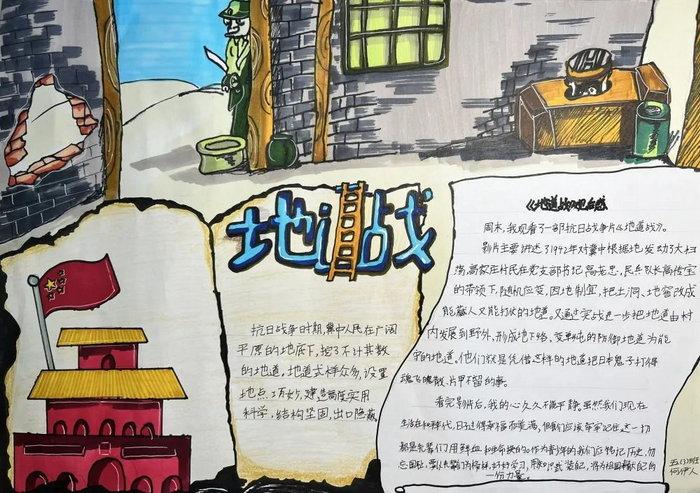 地道战
抗日战争时期,冀中人民在广阔
平原的地底下,挖了不计其数
的地道,地道式样众多,设置
地点巧妙,建造高度实用
科学,结构坚固,出口隐蔽
《地道战》观后感
周末,我观看了一部抗日战争片《地道战》。
影片主要讲述了1942年对冀中根据地发动了大扫
荡,高家庄村民在党支部书记高老忠,民兵队长高传宝
的带领下,随机应变,因地制宜,把土洞、地窖改成
能藏人又能打仗的地道,又通过实战进一步把地道由村
内发展到野外,形成地下网,变单纯的防御地道为能
的地道,他们就是凭借这样的地道把日本鬼子打得
魂飞魄散,片甲不留的事。
看完影片后,我的心久久不能平静,虽然我们现在
生活在和平年代,日子过得幸福而美满,但我们应该牢牢记住,这一切
都是先辈们用鲜血和生命换的。作为青少年的我们应牢记历史,勿
忘国耻,要以先辈为榜样,好好学习,将为祖国献
一份力量。
五(3)班
何伊人